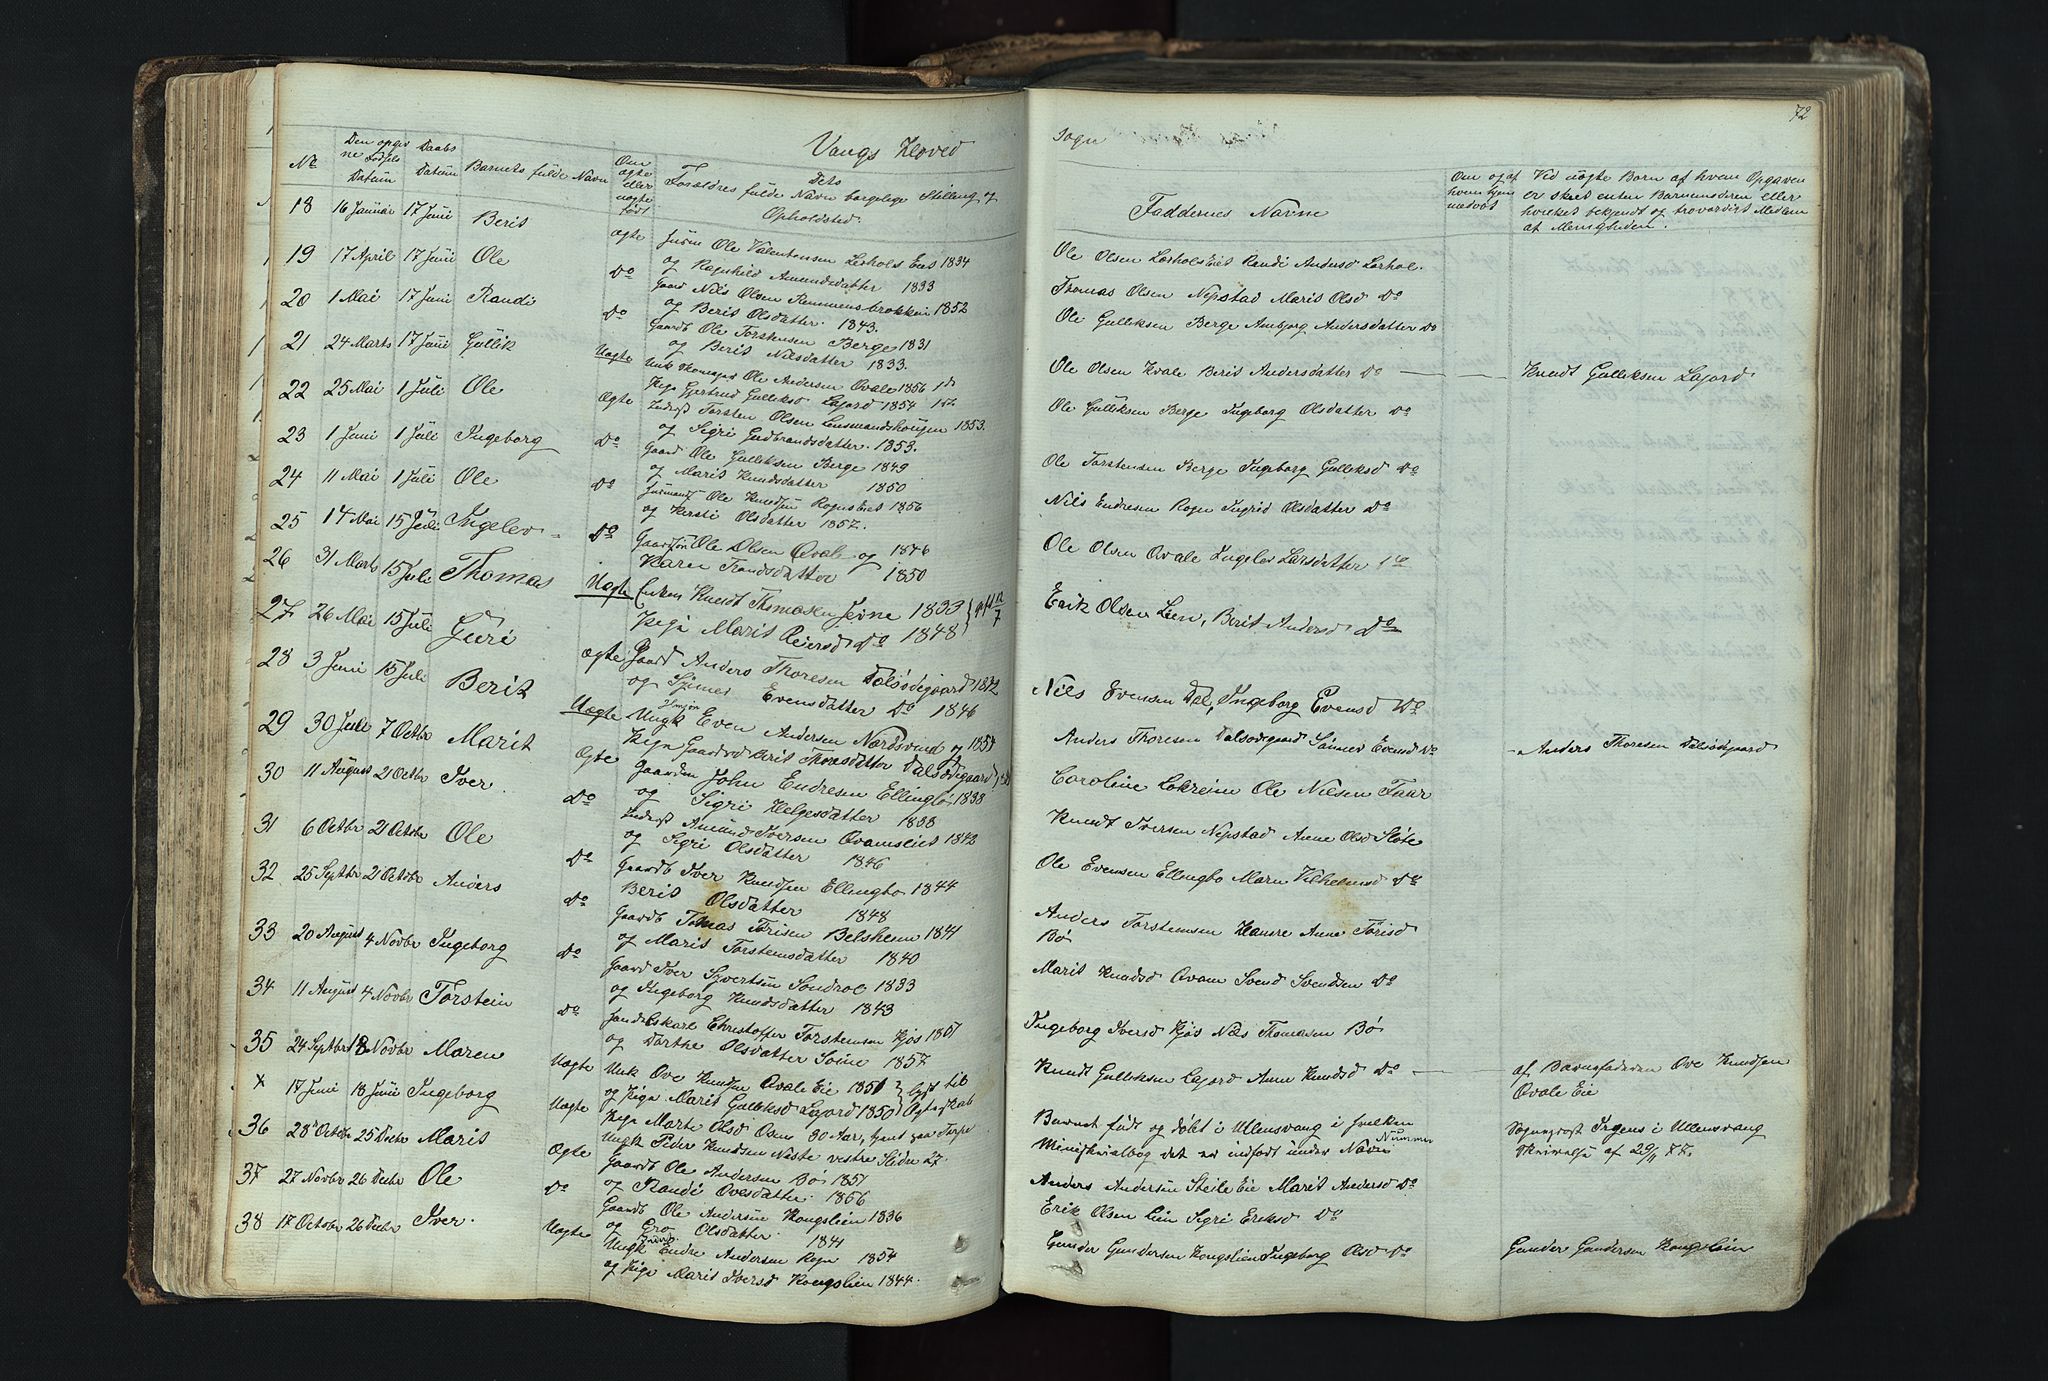 Vangs Hoved
Sogn
72
No
Den opgivne Fødsels Datum
Daabs Datum
Barnets fulde Navn
Om ægte eller uægte født
Forældres fulde Navn Dets borgelige Stilling og Opholdsted.
Faddernes Navne
Om og af hvem hjemmedøbt
Vid uægte Børn af hvem Opgaven er skeet enten Barnemoderen eller hvilket bekjendt og troværdigt Medlem af Menigheden.
18 16 Januar 17 Juni Berit ægte
Ole Valentinsen Lerhols Eiet 1834
og Ragnhild Amundsdatter 1833
Ole Olsen Lerhols Eiet Randi Andersd Lerhol.
19 17 April 17 Juni Ole Do
Gaard Nils Olsen 1852
og Berit Olsdatter. 1843.
Thomas Olsen Nepstad Marit Olsd Do
20 1 Mai 17 Juni Randi Do
Gaardb Ole Torstensen Berge 1831
og Berit Nilsdatter 1833.
Ole Gulliksen Berge Ambjørg Andersdatter Do
21 24 Marts 17 Juni Gullik Uægte
Unk Ole Andersen Qvale 1856
Pige Gjertrud Gulliksd Lajord 1854
Ole Olsen Kvale Berit Andersdatter Do
Knudt Gulliksen Lajord
22 25 Mai 1 Juli Ole Ægte
Inderst Torsten Olsen Lensmandshougen 1853.
og Sigri Gudbrandsdatter. 1853.
Ole Gulliksen Berge Ingeborg Olsdatter Do
23 1 Juni 1 Juli Ingeborg Do
Gaard Ole Gulliksen Berge 1849
og Marit Knudsdatter 1850
Ole Torstensen Berge Ingeborg Gulliksd Do
24 11 Mai 1 Juli Ole Do
Ole Knudsen Rogns Eiet 1856
og Kersti Olsdatter 1857.
Nils Endresen Rogn Ingrid Olsdatter Do
25 14 Mai 15 Juli Ingelev Do
Ole Olsen Qvale og 1846
Karen Trondsdatter 1850
Ole Olsen Qvale Ingelev Larsdatter
26 31 Marts 15 Juli Thomas Uægte
Enkem Knudt Thomasen Jevne 1833
Pige Marit Reiersd Do 1848
Erik Olsen Lien, Berit Andersd Do
27 26 Mai 15 Juli Guri ægte
Gaard Anders Thoresen Dalsødegaard 1842
og Synnev Evensdatter Do 1846
Nils Evensen Dal, Ingeborg Evensd Do
28 3 Juni 15 Juli Berit Uægte
Ungk Even Andersen Nordsvend og 1854
Pige Berit Thorsdatter Dalsødegaard
Anders Thoresen Dalsødegaard Sønnev Evensd Do
Anders Thoresen Dalsødegaard
29 30 Juli 7 Octbr Marit Ægte
Gaardm John Endresen Ellingbø 1838
og Sigri Helgesdatter 1838
Caroline Lokreim Ole Nilsen Faur
30 11 August 21 Octbr Iver Do
Inderst Amund Iversen Qvamseiet 1842
og Sigri Olsdatter 1846
Knudt Iversen Nepstad Anne Olsd Sløte
31 6 Octbr 21 Octobr Ole Do
Gaardb Iver Knudsen Ellingbø 1844
Berit Olsdatter 1848
Ole Evensen Ellingbø Maren Vilhelmsd Do
32 25 Septbr 21 Octobr Anders Do
Gaardb Tomas Torisen Belsheim 1841
og Marit Torstensdatter 1840
Anders Torstensen Hausre Anne Torisd Bø
33 20 August 4 Novbr Ingeborg Do
Gaard Iver Syvertsen Søndrol 1833
og Ingeborg Knudsdatter 1843
Marit Knudsd Qvam Svend Svendsen Do
34 11 August 4 Novbr Torstein Do
Christoffer Torstensen Kjøs 1851
og Dorthe Olsdatter Soine 1857
Ingeborg Iversd Kjøs Nils Thomasen Bø
35 24 Septbr 18 Novbr Maren Uægte
Unk Ove Knudsen Qvale Eie 1851
og Pige Marit Gulliksd Lajord 1850
Knudt Gulliksen Lajord Anne Knudsd Do
af Barnefaderen Ove Knudsen Qvale Eie
x 17 Juni 18 Juni Ingeborg Uægte
Pige Marte Olsd 30 Aar,
Ungk Peder Knudsen Næste vestre Slidre 27.
Barnet født og døbt i Ullensvang i hvilken
Ministerialbog det er indført under Navn Nummer
Sogneprest Irgens i Ullensvang
Skrivelse af 29/11 77.
36 28 Octobr 25 Decbr Marit Ægte
Gaardb Ole Andersen Bø 1851
og Randi Ovesdatter 1856
Anders Andersen Steile Eie Marit Andersd Do
37 27 Novbr 26 Decbr Ole Do
Gaardb Ole Andersen Kongslien 1836
og Gro Olsdatter. 1841
Erik Olsen Lien Sigri Eriksd Do
38 17 Octobr 26 Decbr Iver. Uægte
Ungk Endre Andersen Rogn 1854
og Pige Marit Iversd Kongslien 1844.
Gunder Gundersen Kongslien Ingeborg Olsd Do
Gunder Gundersen Kongslien